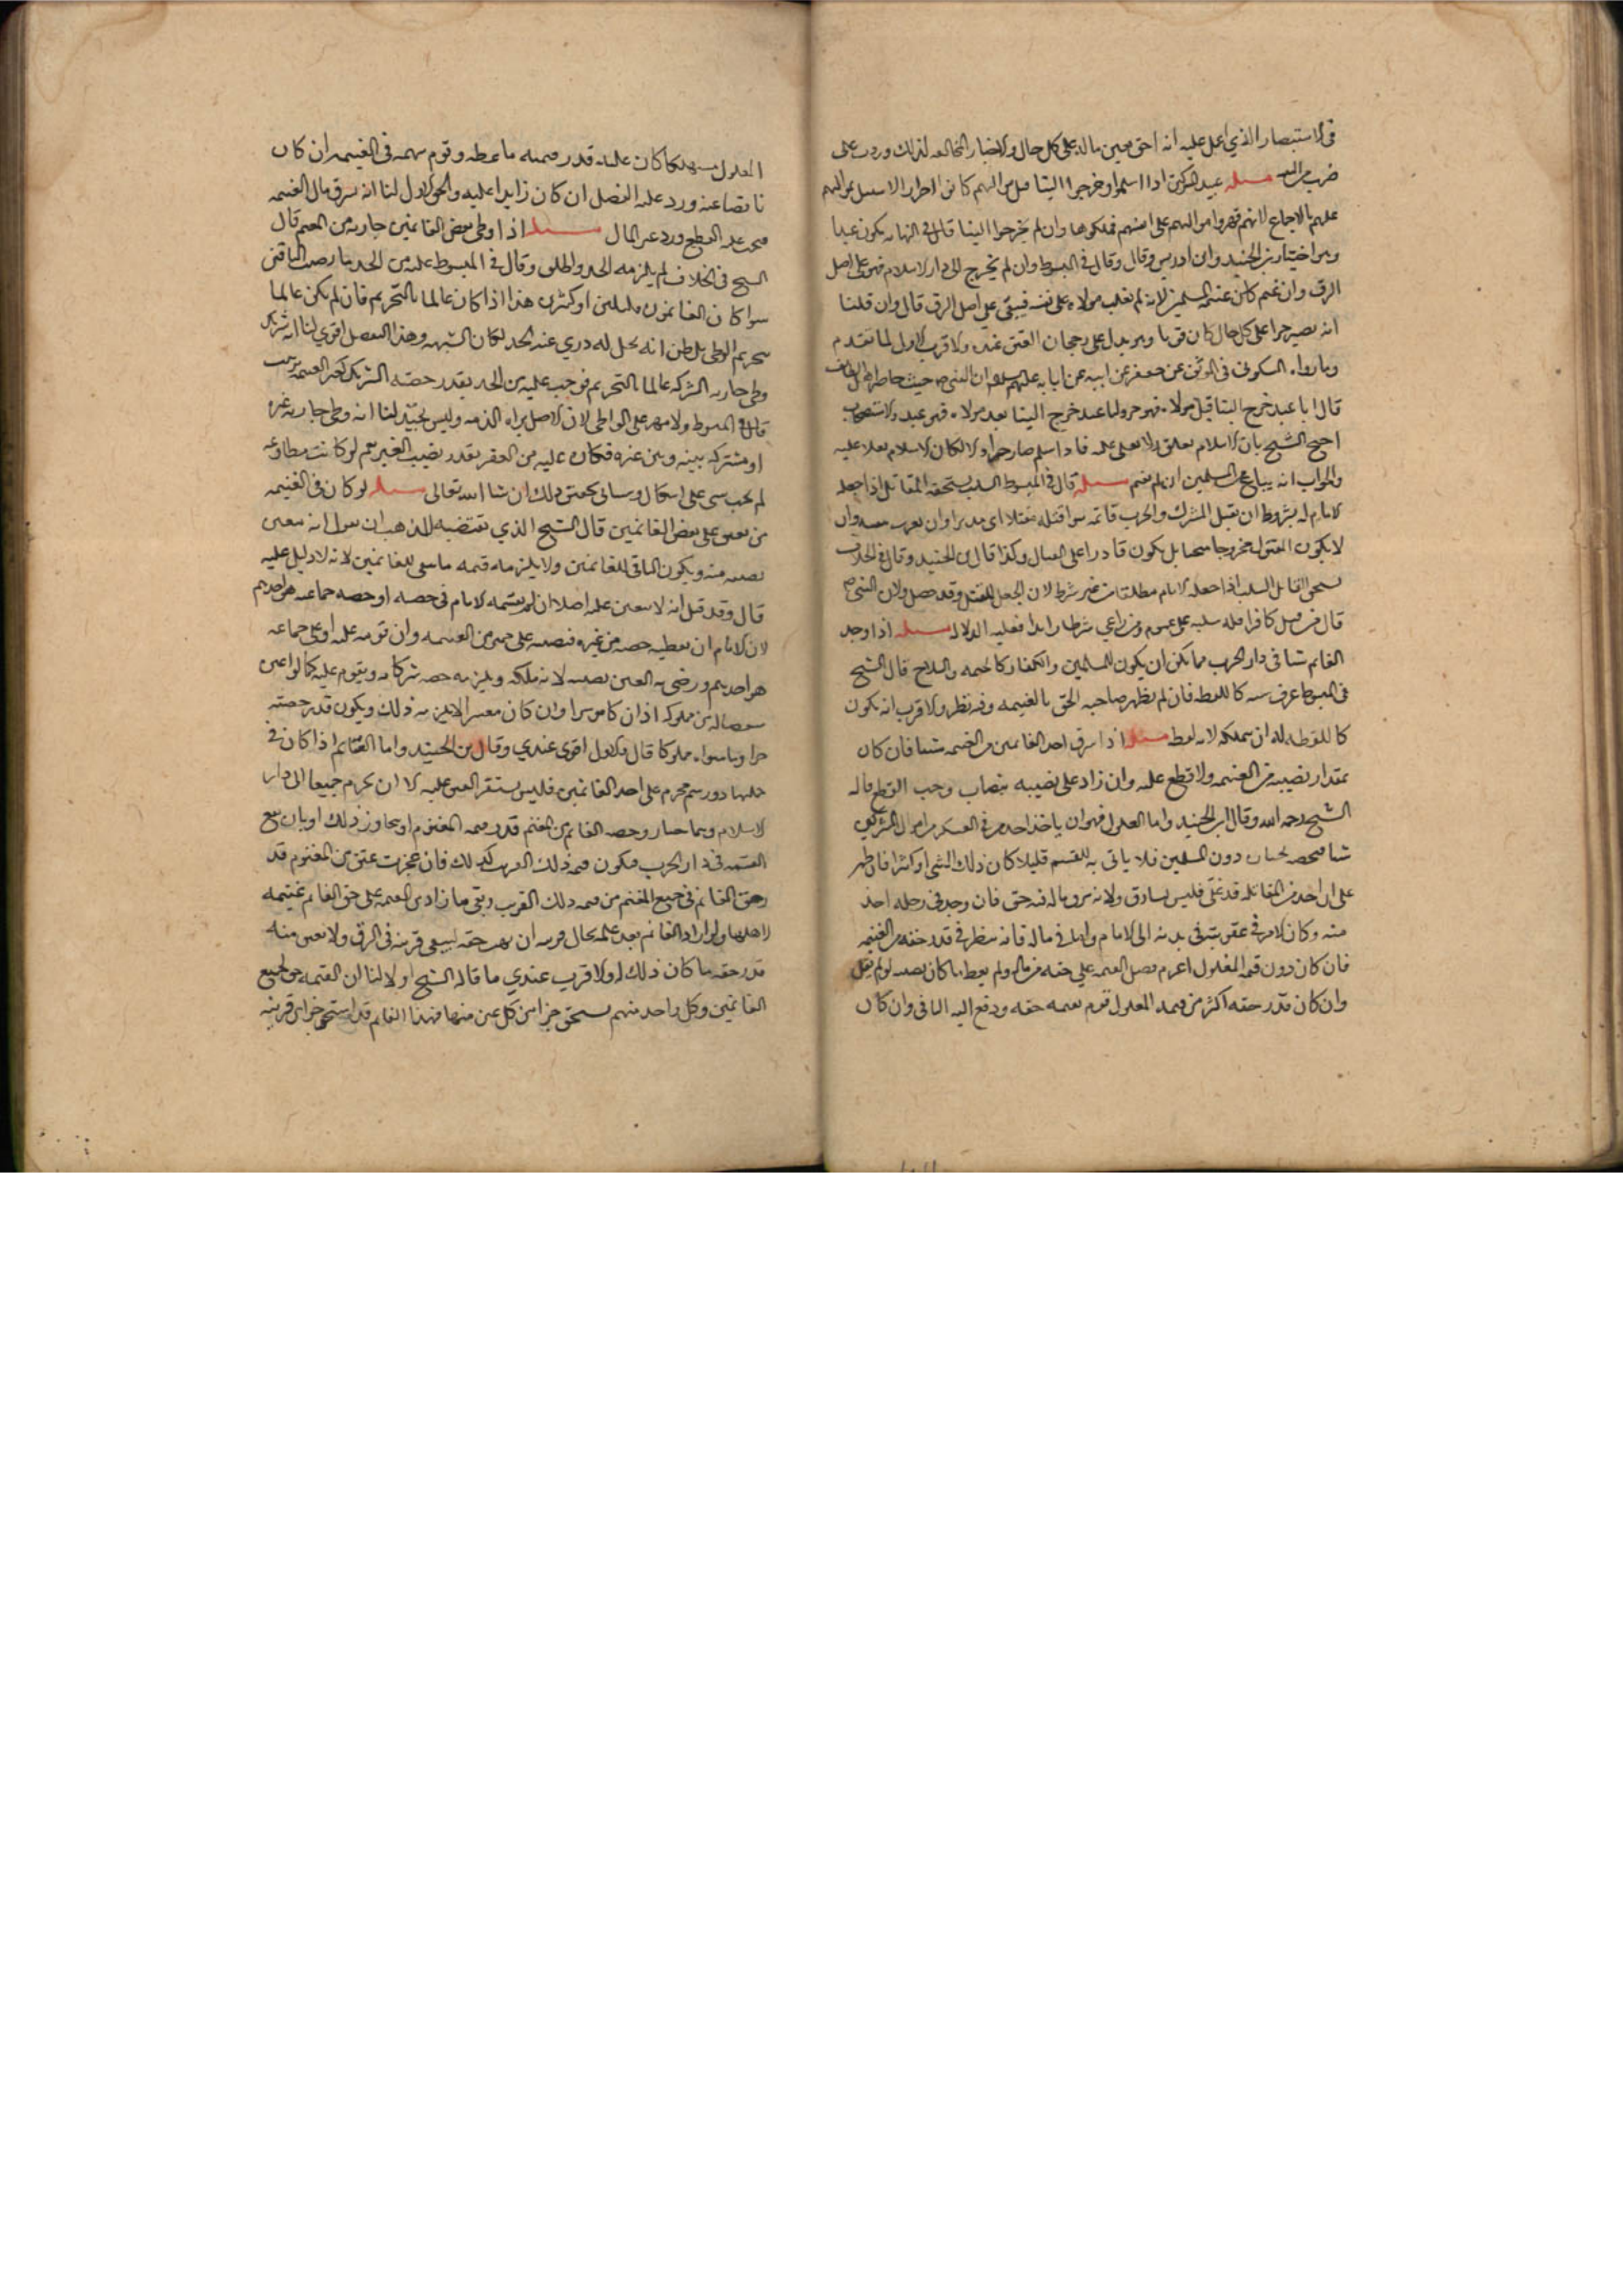 في الاستبصار الذي اعمل عليه انه احق بعين ماله على كل حال والاخبار المخالفه لذلك وردت على
ضرب من التقيه مسله عبيد المشركين اذا اسلموا وخرجوا الينا قبل مواليهم كانوا احرارا لا سبيل لمواليهم
عليهم بالاجماع لانهم قهروا مواليهم على انفسهم فملكوها وان لم يخرجوا الينا قال في النهايه يكون عبدا
وهو اختيار بن الجنيد وابن ادريس وقال في المبسوط وان لم يخرج الى دار الاسلام فهو على اصل
الرق وان غنم كان غنيمة للمسلمين لانه لم يغلب مولاه على نفسه فيبقى على اصل الرق قال وان قلنا
انه يصير حرا على كل حال كان قويا وهو يدل على رجحان العتق عنده والاقرب الاول لما تقدم
وما رواه السكوني في الموثق عن جعفر عن ابيه عن ابايه عليهم السلم ان النبي ص حيث حاصر اهل الطايف
قال ايما عبد خرج الينا قبل مولاه فهو حر وايما عبد خرج الينا بعد مولاه فهو عبد والاستصحاب
احتج الشيخ بان الاسلام يعلو ولا يعلى عليه فاذا اسلم صار حرا والا لكان الاسلام يعلا عليه
والجواب انه يباع على المسلمين ان لم يغنم مسله قال في المبسوط السلب يستحقه المقاتل اذا جعله
الامام له بشروط ان يقتل المشرك والحرب قائمه سوا قتله مقبلا او مدبرا وان يغرر بنفسه وان
لا يكون المقتول مجروحا مثخنا بل يكون قادرا على القتال وكذا قال بن الجنيد وقال في الخلاف
يستحق القاتل السلب اذا جعله الامام مطلقا من غير شرط لان الجعل للقتل وقد حصل ولان النبي ص
قال من قتل كافرا فله سلبه على عمومه ومن راعى شرطا زايدا فعليه الدلاله مسله اذا وجد
الغانم شيا في دار الحرب مما يمكن ان يكون للمسلمين والكفار كالخيمه والسلاح قال الشيخ
في المبسوط عرف سنه كاللقطه فان لم يظهر صاحبه الحق بالغنيمه وفيه نظر والاقرب انه يكون
كاللقطه له ان يتملكه لانه لقطه مسله اذا سرق احد الغانمين من الغنيمه شيا فان كان
بمقدار نصيبه من الغنيمه ولا قطع عليه وان زاد على نصيبه بنصاب وجب القطع قاله
الشيخ رحمه الله وقال ابن الجنيد واما الغلول فهو ان ياخذ احد من في العسكر من اموال المشركين
شيا دون المسلمين فلا ياتي به للقسم قليلا كان ذلك الشي او كثيرا فان ظهر
على ان احد من المقاتله قد غل فليس بسارق ولانه سرق ما له فيه حق فان وجد في رحله اخذ
منه وكان الامر في عقوبته في بدنه الى الامام واما في ماله فانه ينظر في قدر حقه من الغنيمه
فان كان دون قيمه المغلول اغرم فضل القيمه على حقه من ماله ولم يعط ما كان نصيبه لو لم يغل
وان كان قدر حقه اكثر من قيمه المغلول قوم بقيمه حقه ودفع اليه الباقي وان كان
المغلول مستهلكا كان عليه قدر قيمته ما غله وقوم سهمه في الغنيمه ان كان
ناقصا عنه ورد عليه الفضل ان كان زايدا عليه والحق الاول لنا انه سرق مال الغنيمه
فيجب عليه القطع ورد عين المال مسله اذا وطي بعض الغانمين جاريه من المغنم قال
الشيخ في الخلاف لم يلزمه الحد واطلق وقال في المبسوط عليه من الحد بما يصيب الباقين
سوا كان الغانمون قليلين او كثيرين هذا اذا كان عالما بالتحريم فان لم يكن عالما
بتحريم الوطي بل ظن انه يحل له دري عنه الحد لمكان الشبهه وهذا التفصيل اقوى لنا انه شريك
وطي جاريه الشركه عالما بالتحريم فوجب عليه من الحد بقدر حصه الشريك كغير الغنيمه
قال في المبسوط ولا مهر على الواطي لان الاصل براه الذمه وليس بجيد لنا انه وطي جاريه غيره
او مشتركه بينه وبين غيره فكان عليه من العقر بقدر نصيب الغير نعم لو كانت مطاوعه
لم يجب شي على اشكال وسياتي تحقيق ذلك ان شا الله تعالى مسله لو كان في الغنيمه
من يعتق على بعض الغانمين قال الشيخ الذي يقتضيه المذهب ان نقول انه ينعتق
نصيبه منه ويكون الباقي للغانمين ولا يلزمه قيمه ما يبقى للغانمين لانه لا دليل عليه
قال وقد قيل انه لا ينعتق عليه اصلا ان لم يقسمه الامام في حصته او حصه جماعه هو احدهم
لان للامام ان يعطيه حصه من غيره فنصيبه على غير متميز من الغنيمه وان قومه عليه او على جماعه
هو احدهم ورضي به انعتق نصيبه لانه ملكه ويلزمه حصه شركايه ويقوم عليه كما لو اعتق
نصيبا له من مملوكه اذا كان موسرا وان كان معسرا لا يلزمه ذلك ويكون قدر حصته
حرا وما سواه مملوكا قال والاول اقوى عندي وقال بن الجنيد واما الغنايم اذا كان في
جملتها ذو رحم محرم على احد الغانمين فليس يستقر العتق عليه الا ان يحرم جميعا الى دار
الاسلام وحصه الغانم من المغنم قدر قيمه المغنوم او يجاوز ذلك او بان يقع
القسمه في دار الحرب فيكون قيمه ذلك القريب كذلك فان عجزت عتق من المغنوم قد
رحق الغانم في جميع المغنم من قيمه ذلك القريب وبقي ما زاد من القيمه على حق الغانم غنيمه
لاهلها ولو اراد الغانم بعد علمه بحال قريبه ان يهب حقه ليبقى قريبه في الرق ولا يعتق منه
قدر حقه ما كان ذلك له والاقرب عندي ما قاله الشيخ اولا لنا ان الغنيمه حق لجميع
الغانمين وكل واحد منهم يستحق جزا من كل عين منها فهذا الغانم قد استحق جزا من قريبه